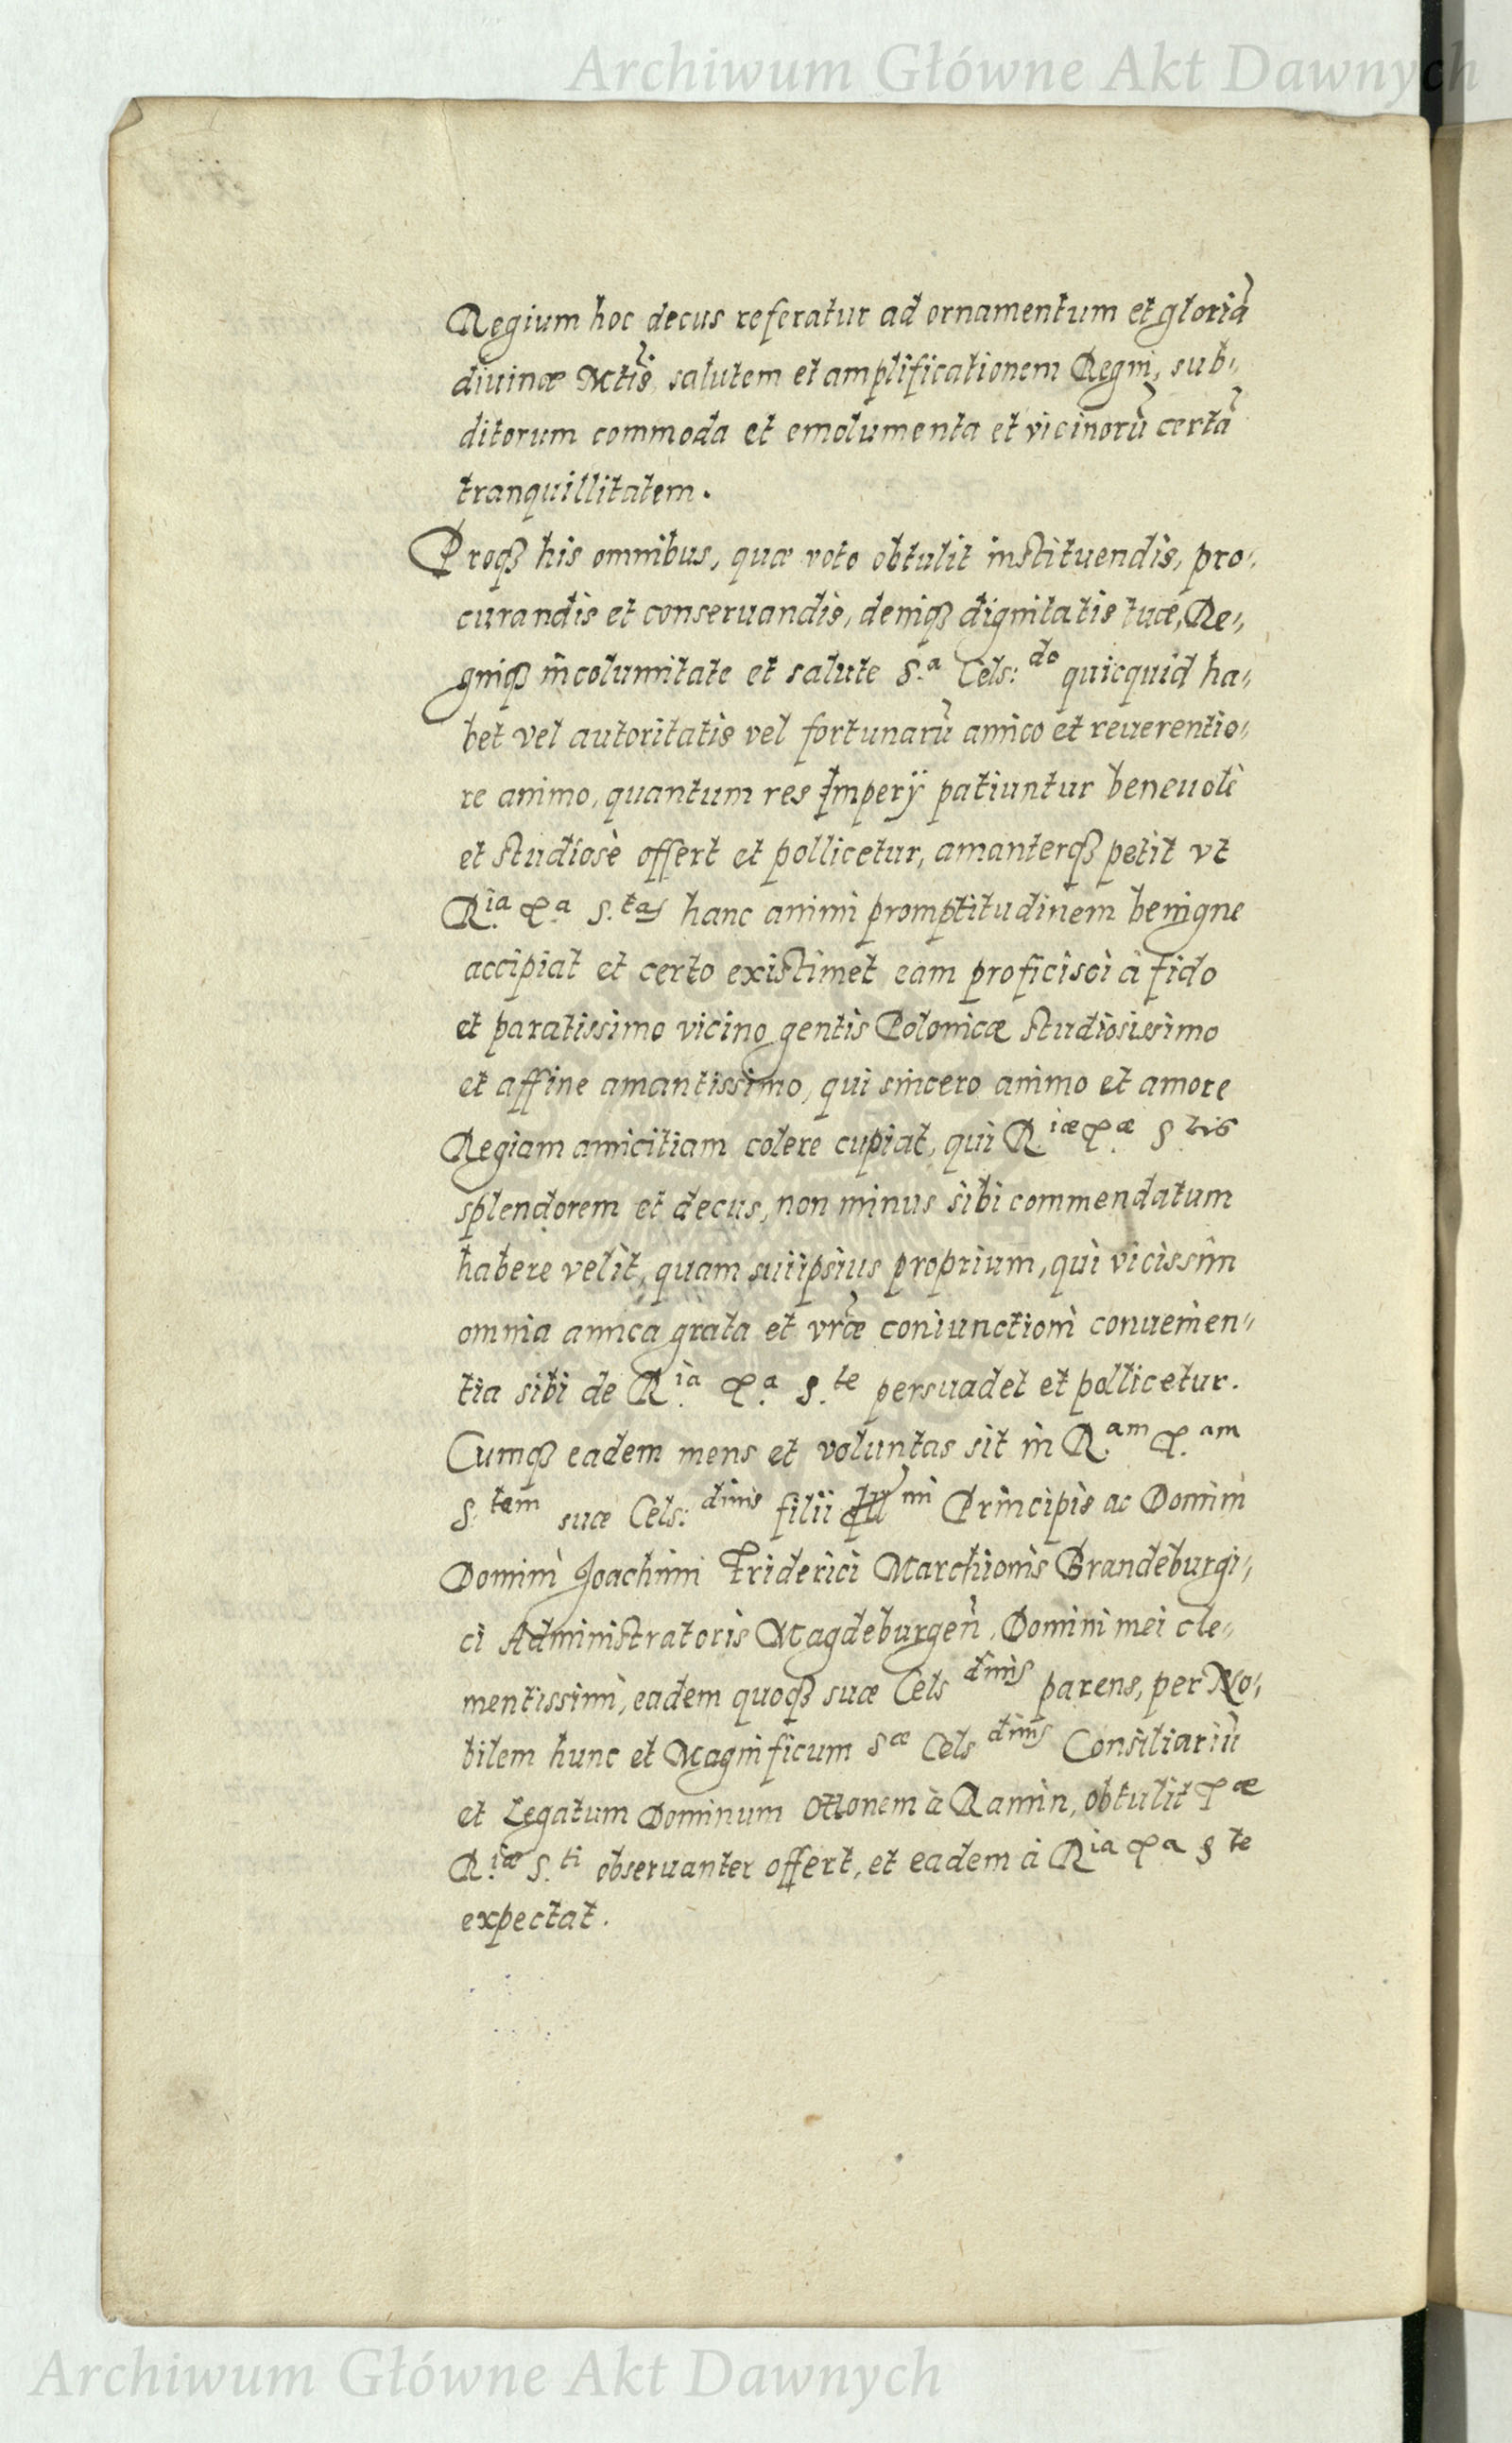 Archiwum Główne Akt Dawnych
Regium hoc decus referatur ad ornamentum et gloriã
diuinæ Mtis̃ salutem et amplificationem Regni, sub„
ditorum commoda et emolumenta et vicinorũ certã
tranquillitatem.
Proqȝ his omnibus, quæ voto obtulit instituendis, pro„
curandis et conseruandis, deniqȝ dignitatis tuæ, Re„
gniqȝ incolumitate et salute S.ᵃ Cels:ᵈᵒ quicquid ha„
bet vel autoritatis vel fortunarũ amico et reuerentio„
re animo, quantum res Imperÿ patiuntur beneuolè
et studiosè offert et pollicetur, amanterqȝ petit vt
R.ⁱᵃ V.ᵃ S.ᵗᵃˢ hanc animi promptitudinem benigne
accipiat et certo existimet eam proficisci à fido
et paratissimo vicino gentis Polonicæ studiosissimo
et affine amantissimo, qui sincero animo et amore
Regiam amicitiam colere cupiat, qui R.ⁱæ V.æ S.ᵗⁱˢ
splendorem et decus, non minus sibi commendatum
habere velit, quam suiipsius proprium, qui vicissim
omnia amica grata et vræ̃ coniunctioni conuenien„
tia sibi de R.ⁱᵃ V.ᵃ S.ᵗᵉ persuadet et pollicetur.
Cumqȝ eadem mens et voluntas sit in R.ᵃᵐ V.ᵃᵐ
S.ᵗᵉᵐ suæ Cels:ᵈⁱⁿⁱˢ filii Principis ac Domini
Domini Joachimi Friderici Marchionis Brandeburgi„
ci Administratoris Magdeburgeñ, Domini mei cle„
mentissimi, eadem quoqȝ suæ Cels ᵈⁱⁿⁱˢ parens, per No„
bilem hunc et Magnificum Sæ Cels ᵈⁱⁿⁱˢ Consiliariũ
et Legatum Dominum Ottonem à Ramin, obtulit V æ
R.ⁱæ S.ᵗⁱ obseruanter offert, et eadem à Rⁱᵃ Vᵃ S ᵗᵉ
expectat.
Archiwum Główne Akt Dawnych